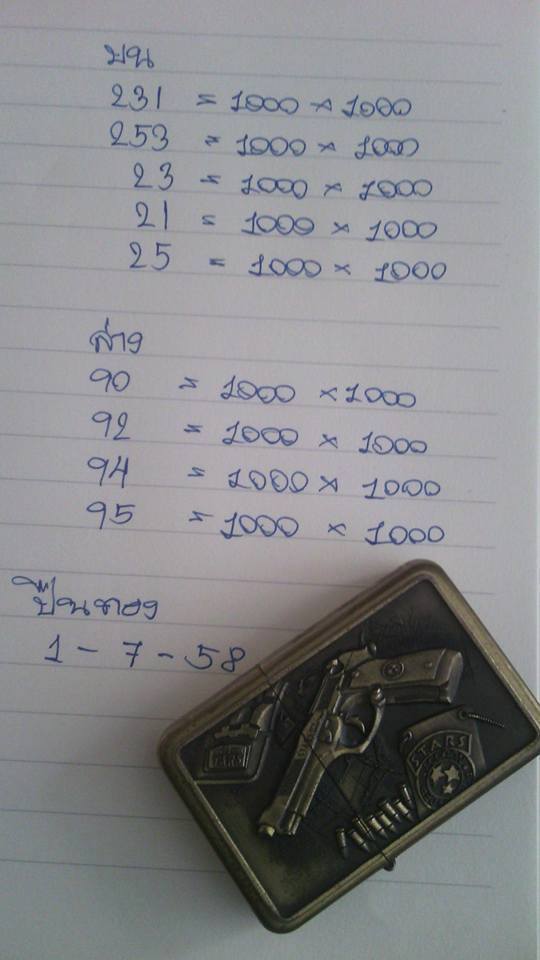 บน
231 = 1000 × 1000
253 = 1000 × 1000
23 = 1000 × 1000
21 = 1000 × 1000
25 = 1000 × 1000
ล่าง
90 = 1000 × 1000
92 = 1000 × 1000
94 = 1000 × 1000
95 = 1000 × 1000
ปืนทอง
1 - 7 - 58
STARS